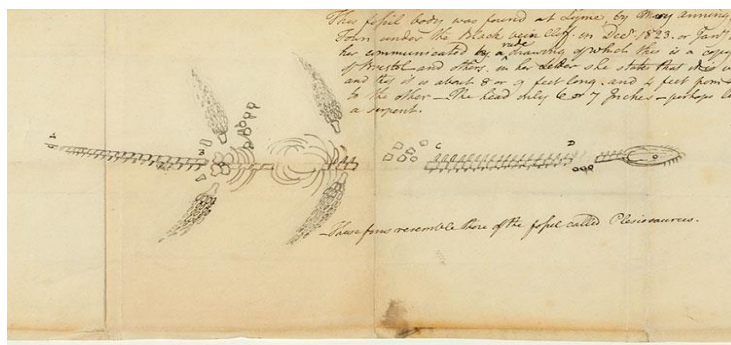 This fossil body was found at Lyme, by Mary Anning,
Town under the Black Ven Cliff in Decr 1823. or Janr
her communicated by a rude drawing of which this is a copy
of Bristol and others. in her letter she states that
and that it is about 8 or 9 feet long, and 4 feet from
to the other – The head only 6 or 7 Inches – perhaps
a serpent.
A
B
C
D
These fins resemble those of the fossil called Plesiosaurus.